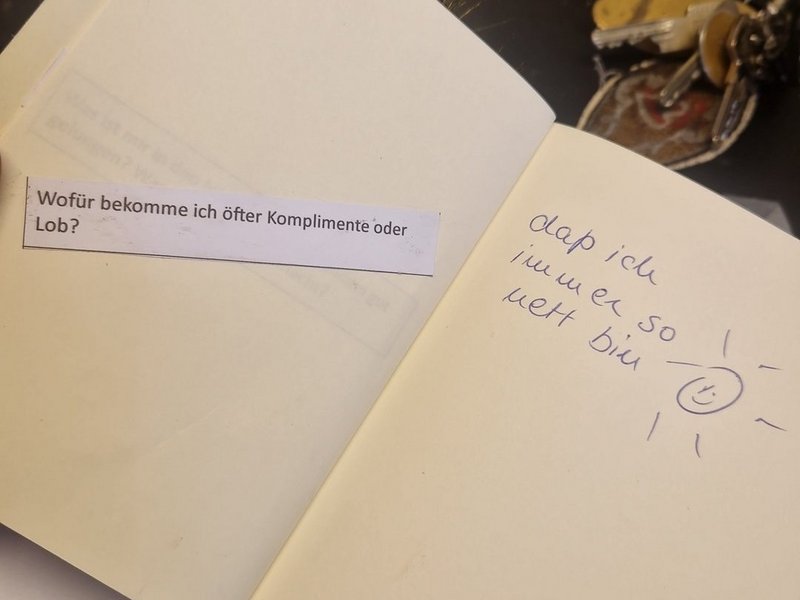 Wofür bekomme ich öfter Komplimente oder
Lob?
daß ich
immer so
nett bin